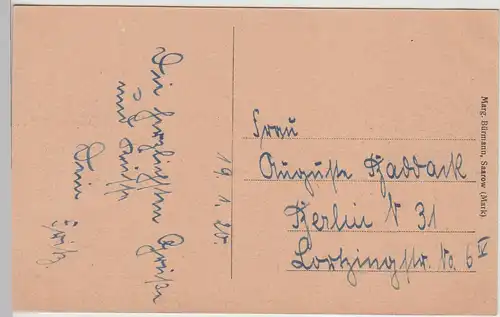 Die herzlichsten Grüße
und Küsse
Dein
Fritz.
19. 1. 20.
Frau
Auguste Schaddack
Berlin N 31
Lortzingstr. No. 6 IV
Marg. Bürmann, Saarow (Mark).